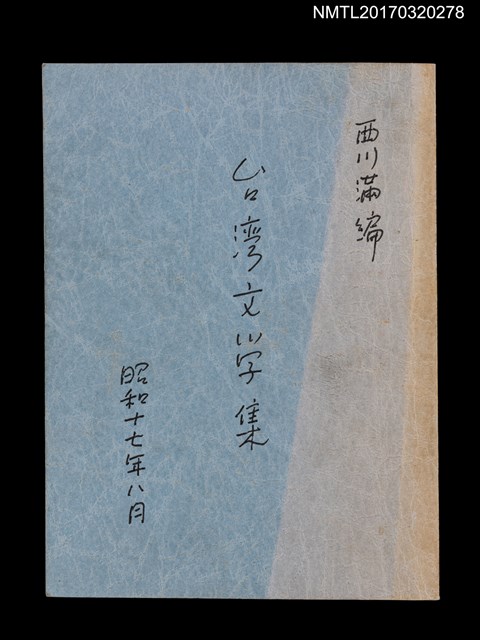 NMTL20170320278
西川満編
台湾文学集
昭和十七年八月